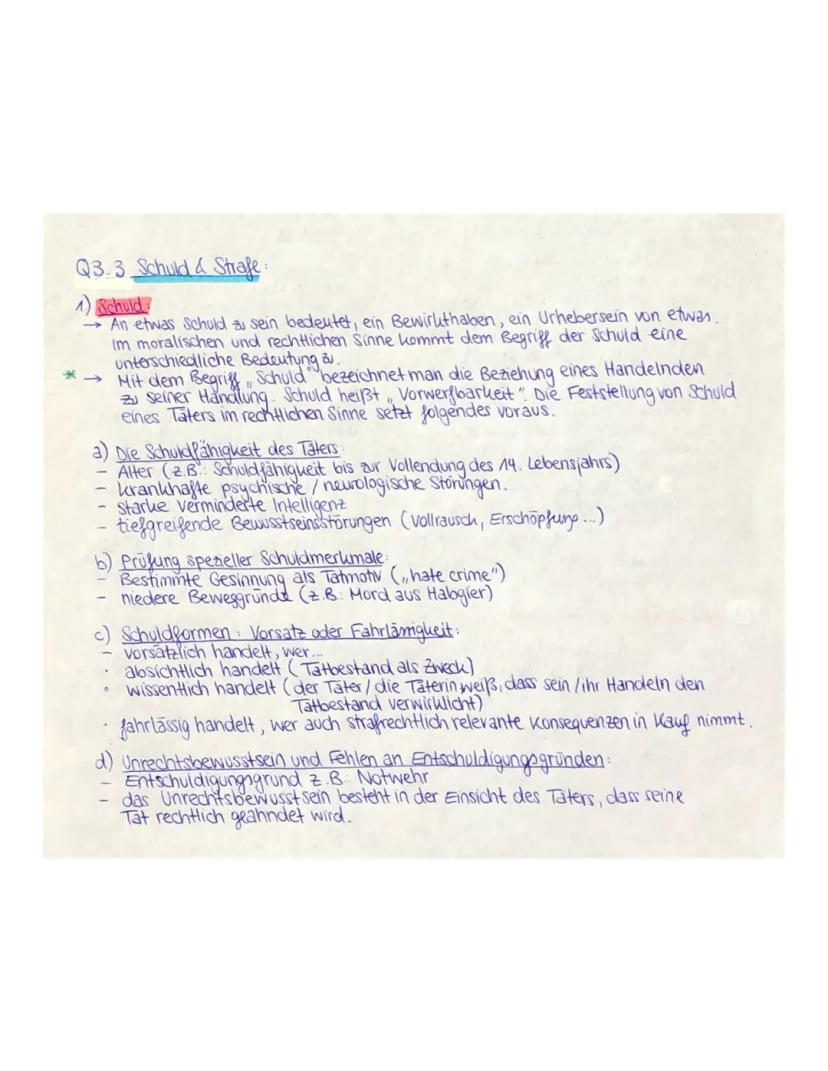 Q3.3 Schuld & Strafe:
1) Schuld:
→ An etwas Schuld zu sein bedeutet, ein Bewirkthaben, ein Urhebersein von etwas.
Im moralischen und rechtlichen Sinne kommt dem Begriff der Schuld eine
unterschiedliche Bedeutung zu.
* → Mit dem Begriff „Schuld" bezeichnet man die Beziehung eines Handelnden
zu seiner Handlung. Schuld heißt „Vorwerfbarkeit". Die Feststellung von Schuld
eines Täters im rechtlichen Sinne setzt folgendes voraus.
a) Die Schuldfähigkeit des Täters:
- Alter (z.B.: Schuldfähigkeit bis zur Vollendung des 14. Lebensjahrs)
- krankhafte psychische / neurologische Störungen.
- starke verminderte Intelligenz
- tiefgreifende Bewusstseinsstörungen (Vollrausch, Erschöpfung ...)
b) Prüfung spezieller Schuldmerkmale:
- Bestimmte Gesinnung als Tatmotiv („hate crime")
- niedere Beweggründe (z.B.: Mord aus Habgier)
c) Schuldformen: Vorsatz oder Fahrlässigkeit:
- vorsätzlich handelt, wer...
• absichtlich handelt (Tatbestand als Zweck)
• wissentlich handelt (der Täter / die Täterin weiß, dass sein / ihr Handeln den
Tatbestand verwirklicht)
• fahrlässig handelt, wer auch strafrechtlich relevante Konsequenzen in Kauf nimmt.
d) Unrechtsbewusstsein und Fehlen an Entschuldigungsgründen:
- Entschuldigungsgrund z.B.: Notwehr
- das Unrechtsbewusstsein besteht in der Einsicht des Täters, dass seine
Tat rechtlich geahndet wird.